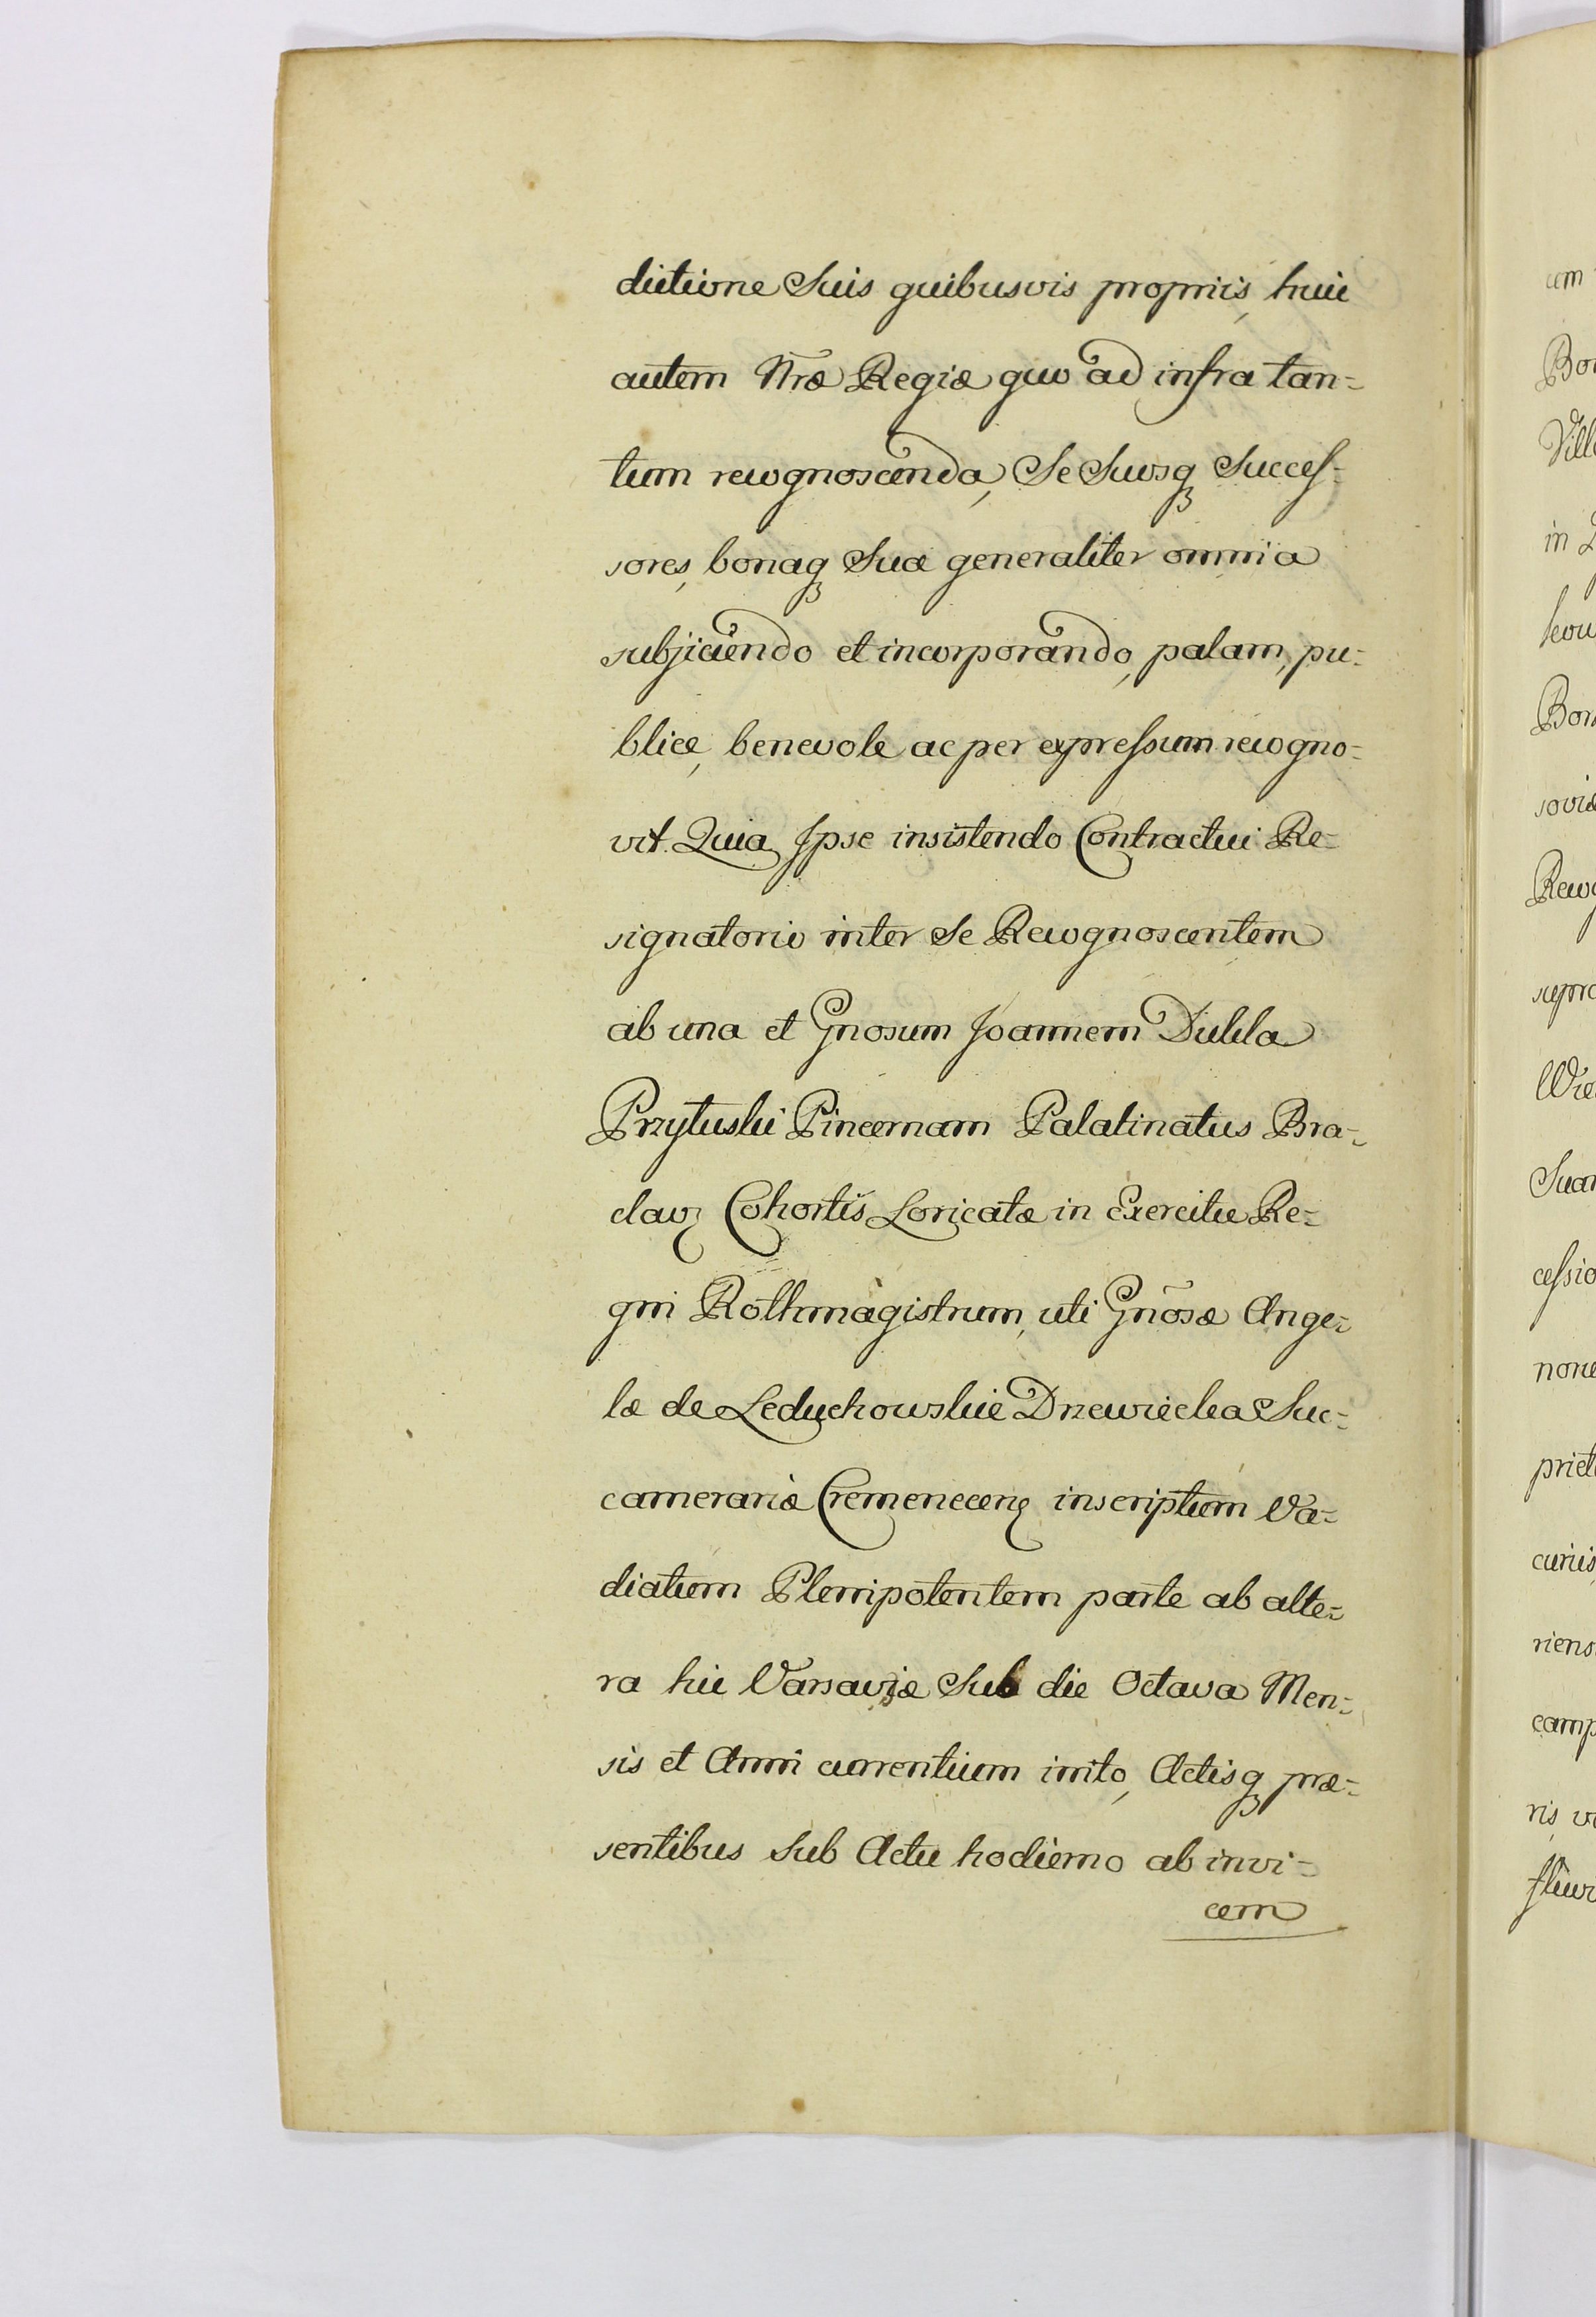 dictione Suis quibusvis propriis, huic
autem Nrae Regiae quo ad infra tan=
tum recognoscenda, Se Suosq Succes=
sores, bonaq Sua generaliter omnia
subjiciendo et incorporando, palam, pu=
blice, benevole ac per expressum recogno=
vit. Quia Ipse insistendo Contractui Re=
signatorio inter Se Recognoscentem
ab una et Gnosum Joannem Dukla
Przytuski Pincernam Palatinatus Bra=
clav Cohortis Loricatae in Exercitu Re=
gni Rothmagistrum, uti Gnosae Ange=
lae de Leduchowskie Drzewiecka Suc=
camerariae Cremenecen inscriptum Va=
diatum Plenipotentem parte ab alte=
ra hic Varsaviae Sub die Octava Men=
sis et Anni currentium inito, Actisq prae=
sentibus Sub Actu hodierno ab invi=
cem
em
Bo
Vill
in
kow
Bon
sovia
Reco
supra
Wie
Suar
cessio
none
priet
curiis
riens
camp
ris, v
fluv